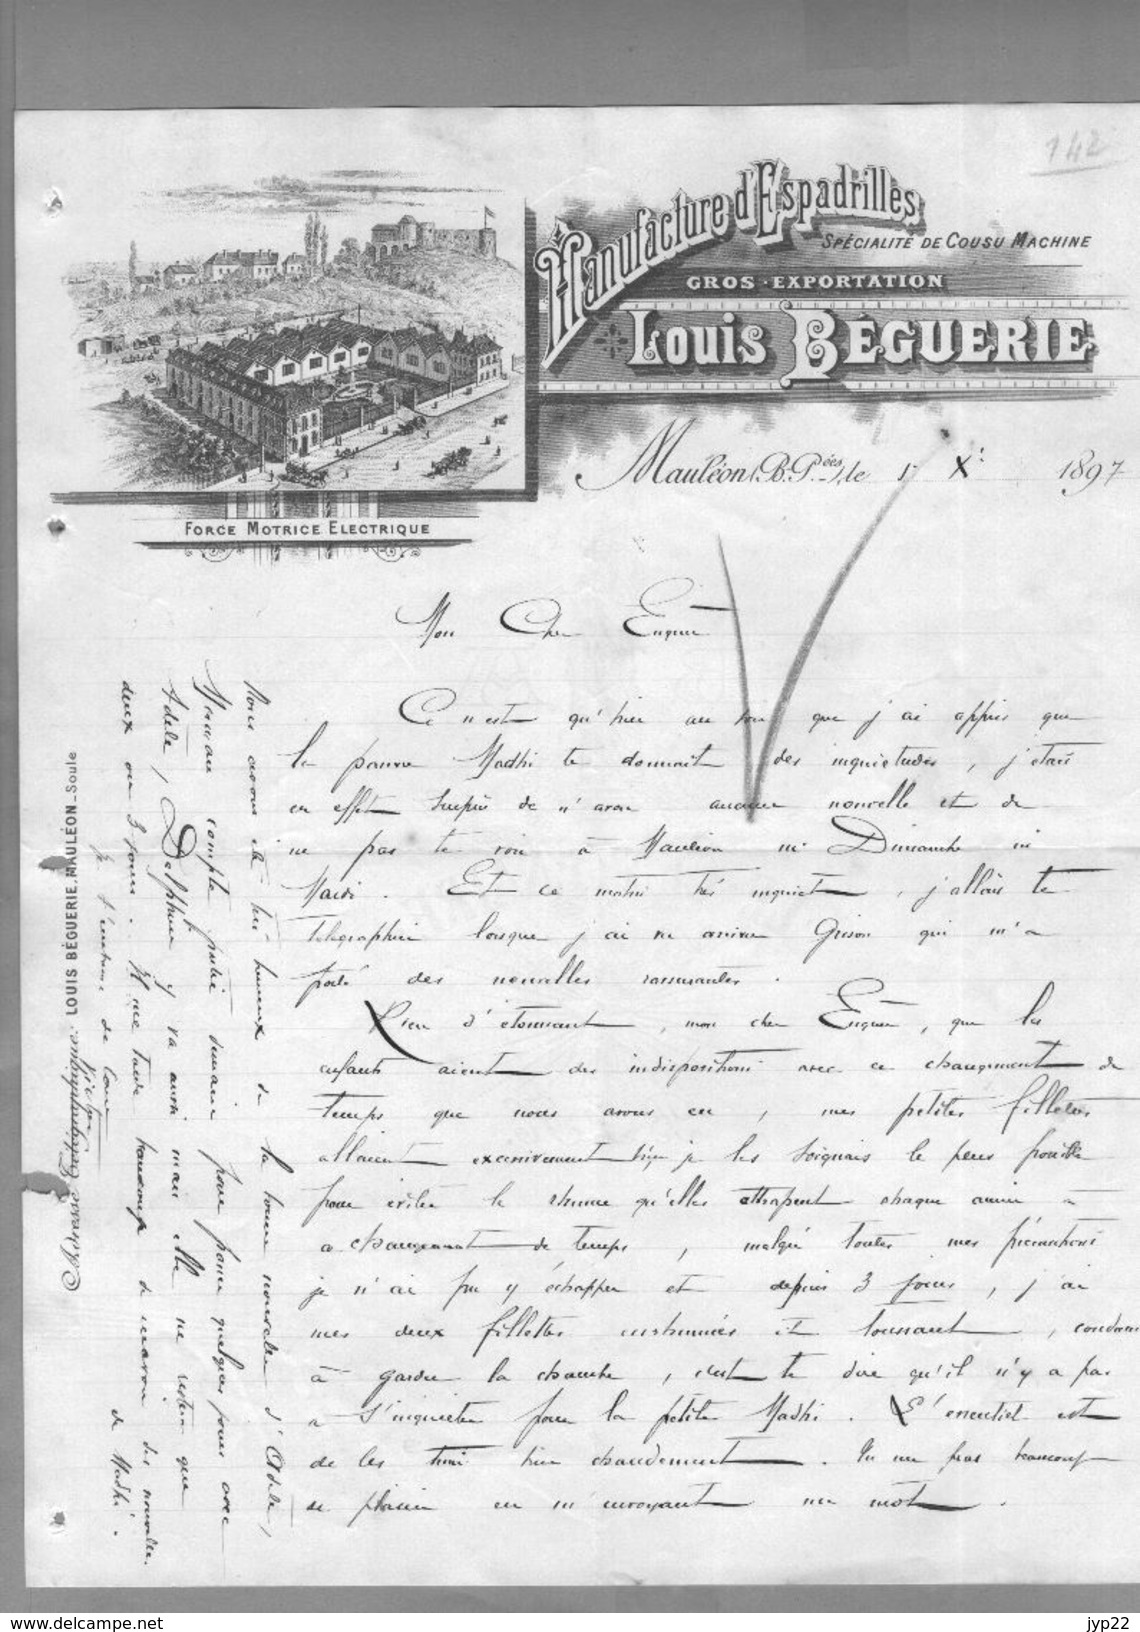 142
Manufacture d'Espadrilles
SPÉCIALITÉ DE COUSU MACHINE
GROS - EXPORTATION
LOUIS BÉGUERIE
FORCE MOTRICE ELECTRIQUE
Mauléon (B.Pées), le 1 Xi 1897
Mon Cher
Ce n'est qu'hier au soir que j'ai appris que
la pauvre Madhi te donnait des inquiétudes, j'étais
en effet surpris de n'avoir aucune nouvelle et de
ne pas te voir à Mauléon ni Dimanche ni
Mardi. Et ce matin très inquiet, j'allais te
télégraphier lorsque j'ai vu arriver Grison qui m'a
porté des nouvelles rassurantes.
Rien d'étonnant, mon cher, que les
enfants aient des indispositions avec ce changement de
temps que nous avons eu, mes petites fillettes
allaient excessivement bien je les soignais le plus possible
pour éviter le rhume qu'elles attrapent chaque année à
ce changement de temps, malgré toutes mes précautions
je n'ai pu y échapper et depuis 3 jours, j'ai
mes deux fillettes enrhumées et toussant,
à garder la chambre, c'est te dire qu'il n'y a pas
à s'inquiéter pour la petite Madhi. L'essentiel est
de les tenir bien chaudement. Tu me feras beaucoup
de plaisir en m'envoyant un mot.
Nous avons été très heureux de la bonne nouvelle d'Adèle,
compte partir demain pour passer quelques jours avec
Adèle, Delphine y va aussi mais elle ne restera que
deux ou 3 jours. Il me tarde beaucoup de recevoir des nouvelles
de Madhi.
Je t'embrasse de cœur
Adresse Télégraphique: LOUIS BÉGUERIE, MAULÉON-Soule
www.delcampe.net
jyp22